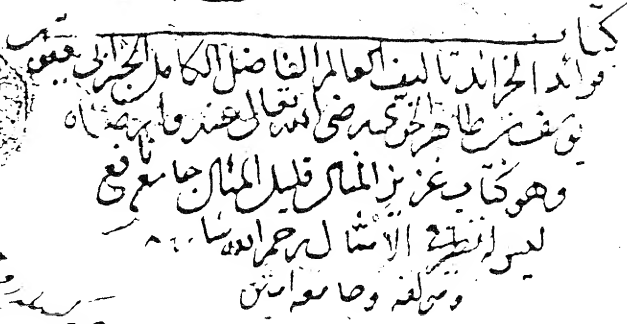 كتاب
فرائد الخرائد تاليف العالم الفاضل الكامل الحبر ابى يعقوب
يوسف بن طاهر الخوى رضى الله تعالى عنه وارضاه
وهو كتاب عزيز المنال قليل المثال جامع نافع
ليس له نظير فى الأمثال رحم الله
ومؤلفه وجامعه امين